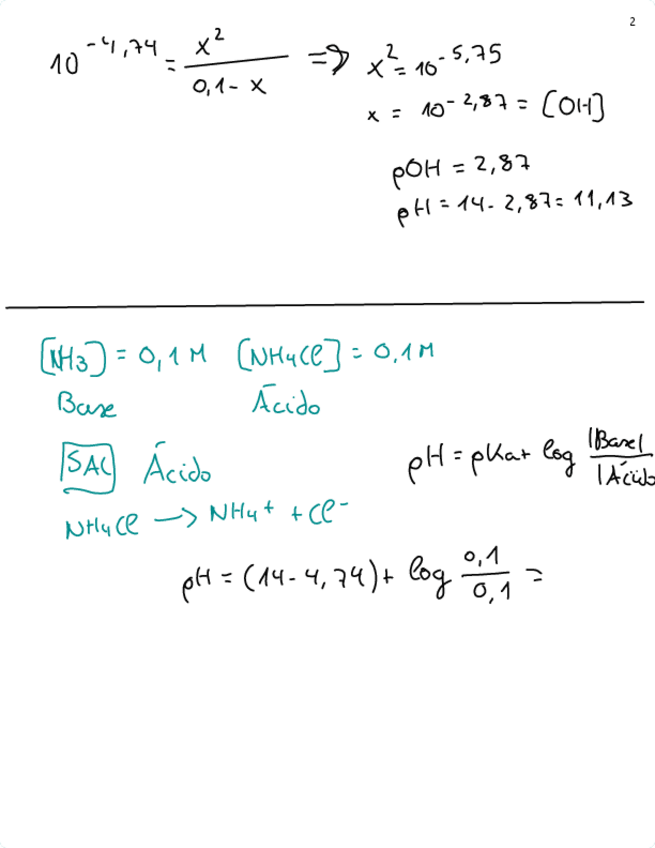 2
10^-4,74 = x^2 / (0,1-x) => x^2 = 10^-5,75
x = 10^-2,87 = [OH]
pOH = 2,87
pH = 14-2,87 = 11,13
[NH3] = 0,1 M [NH4Cl] = 0,1 M
Base Ácido
SAL Ácido
pH = pKa + log |Base| / |Ácido
NH4Cl -> NH4+ + Cl-
pH = (14-4,74) + log 0,1 / 0,1 =